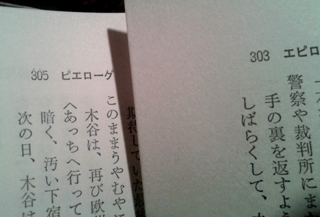 303 エピロ
警察や裁判所にま
手の裏を返すよう
しばらくして、
305 ピエローグ
していた
このままうやむや
木谷は、再び欧
〈あっちへ行って
暗く、汚い下宿
次の日、木谷は